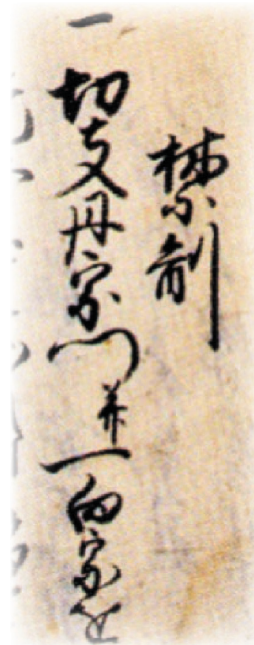 禁制
一切支丹宗門并一向宗之